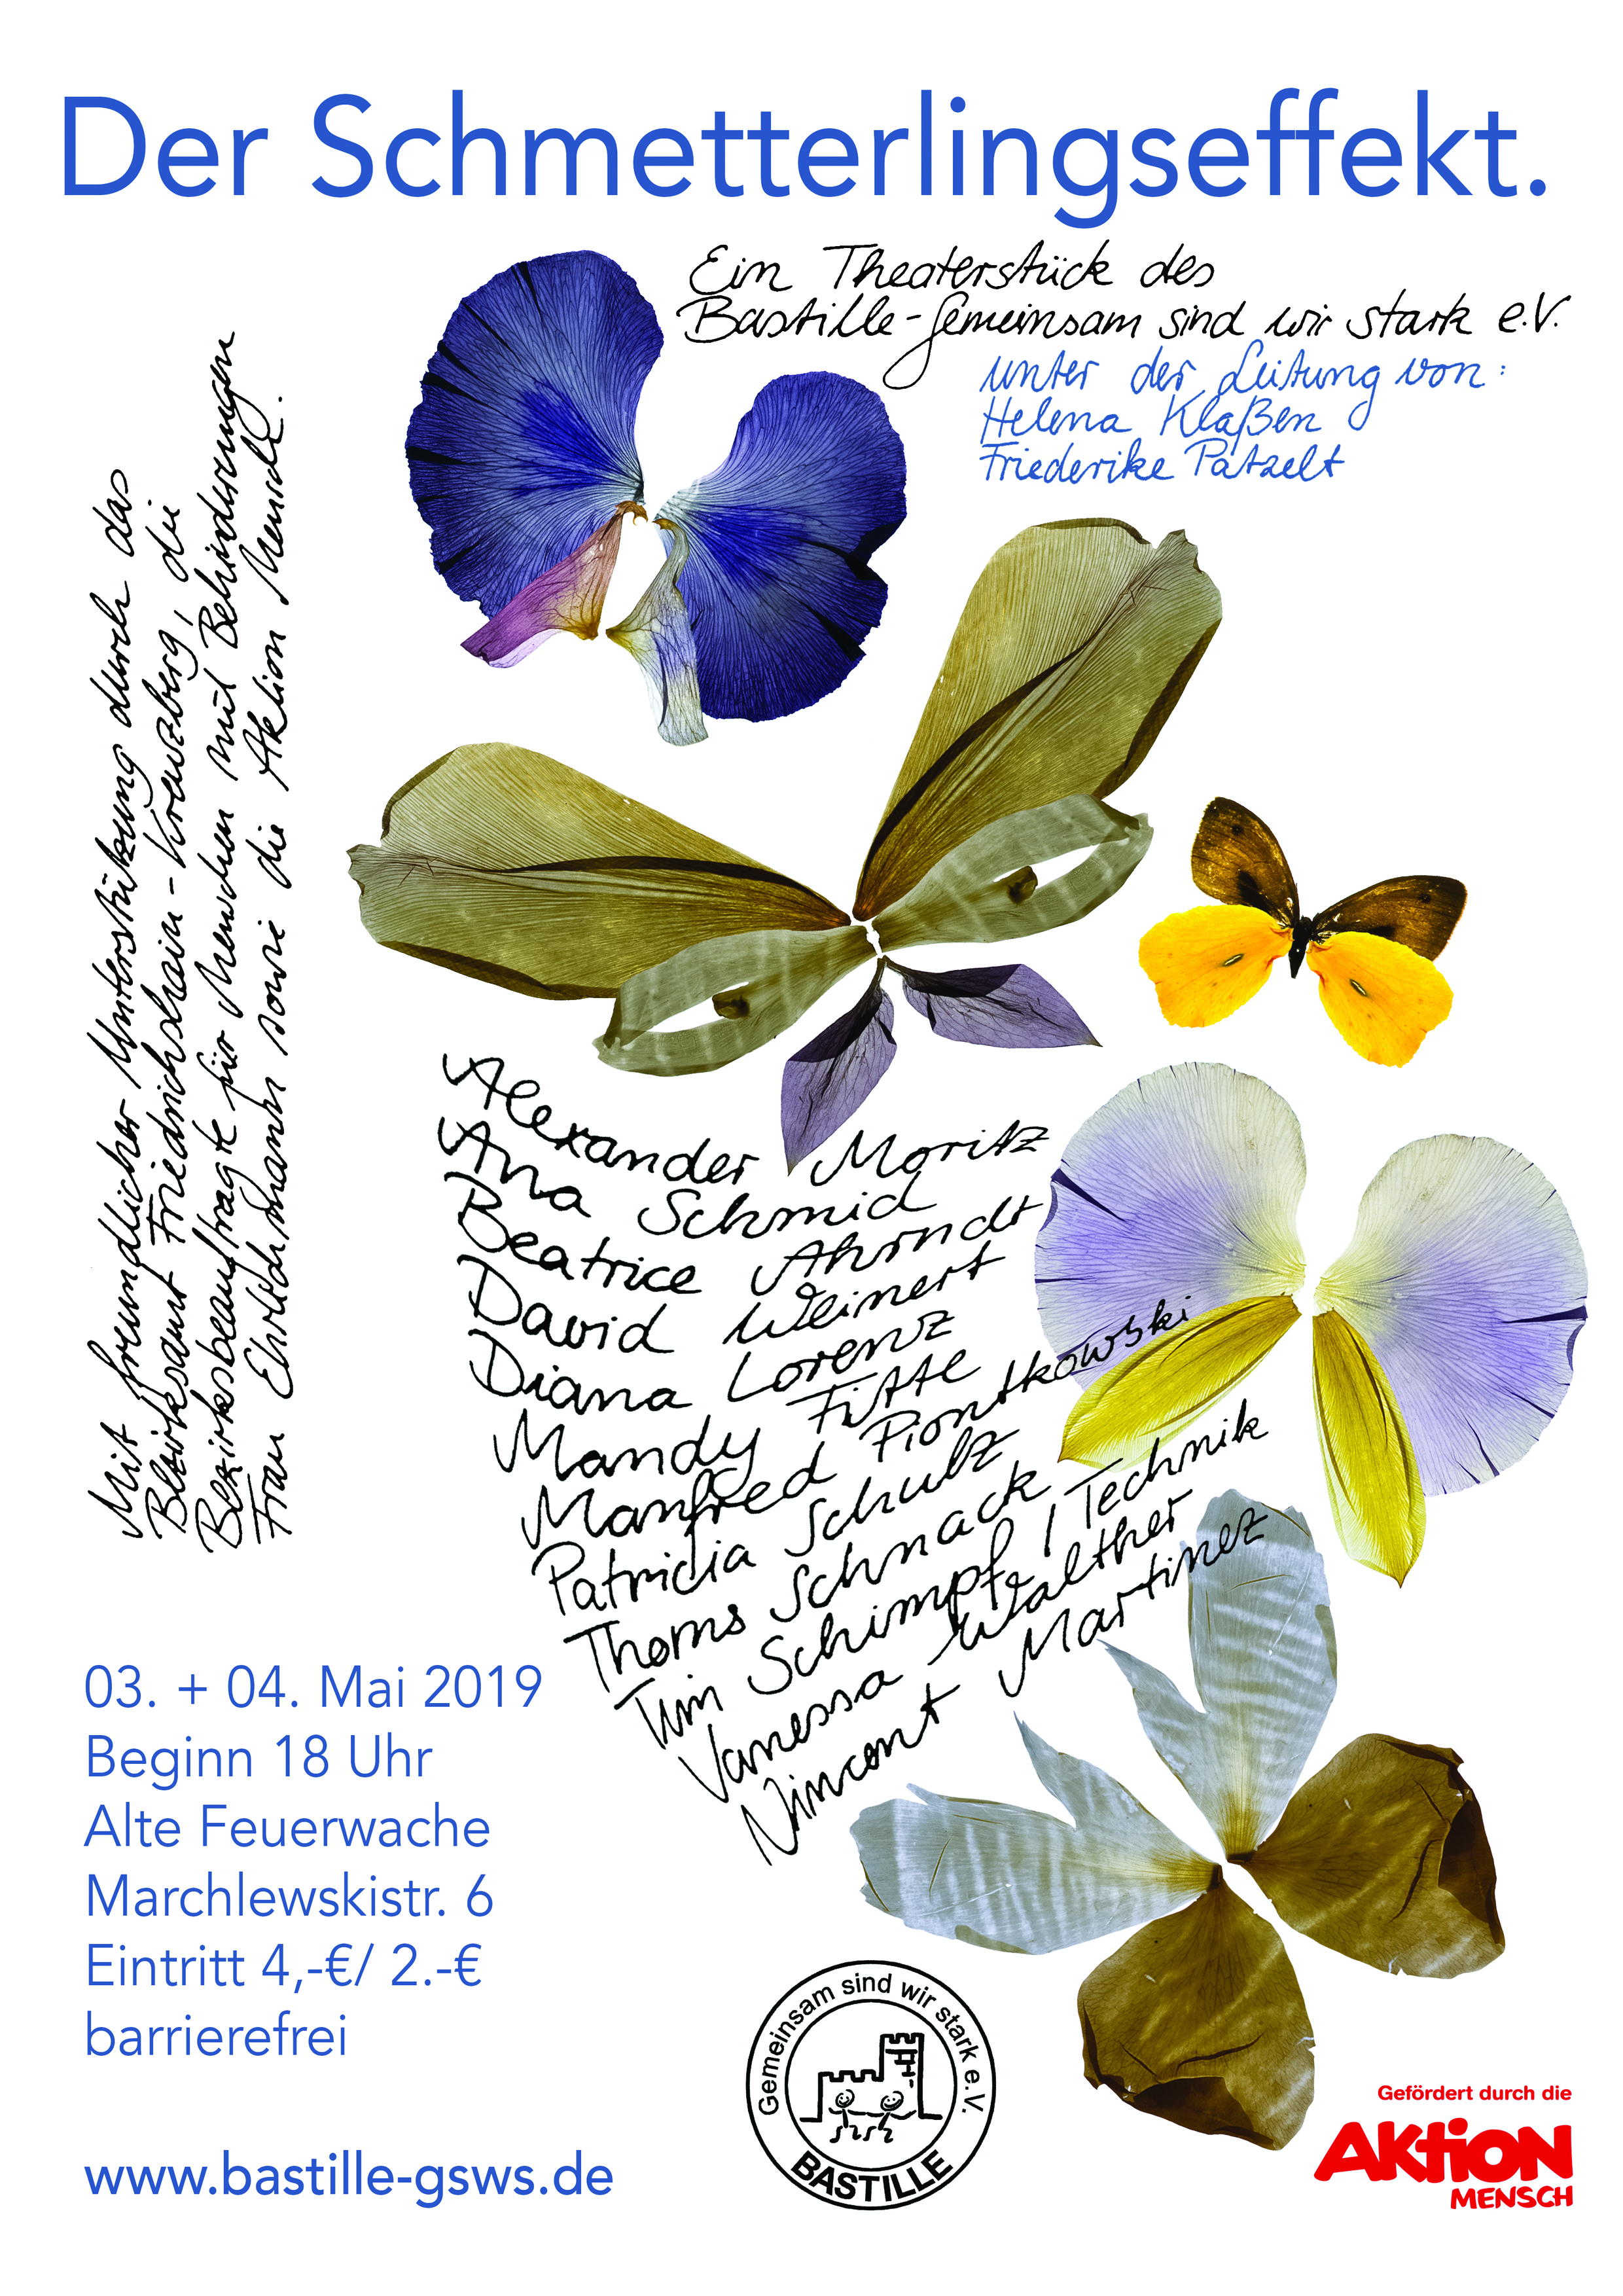 Der Schmetterlingseffekt.
Ein Theaterstück des
Bastille-Gemeinsam sind wir stark e.V.
unter der Leitung von:
Helena Klaßen
Friederike Patzelt
Mit freundlicher Unterstützung durch das
Bezirksamt Friedrichshain-Kreuzberg, die
Bezirksbeauftragte für Menschen mit Behinderungen
Frau Ehrlichmann sowie die Aktion Mensch.
Alexander Moritz
Ana Schmid
Beatrice Ahrndt
David Weinert
Diana Lorenz
Mandy Fitte
Manfred Piontkowski
Patricia Schulz
Thoms Schnack
Tim Schimpf / Technik
Vanessa Walther
Vincent Martinez
03. + 04. Mai 2019
Beginn 18 Uhr
Alte Feuerwache
Marchlewskistr. 6
Eintritt 4,-€/ 2.-€
barrierefrei
www.bastille-gsws.de
Gemeinsam sind wir stark e.V.
BASTILLE
Gefördert durch die
AKTION
MENSCH